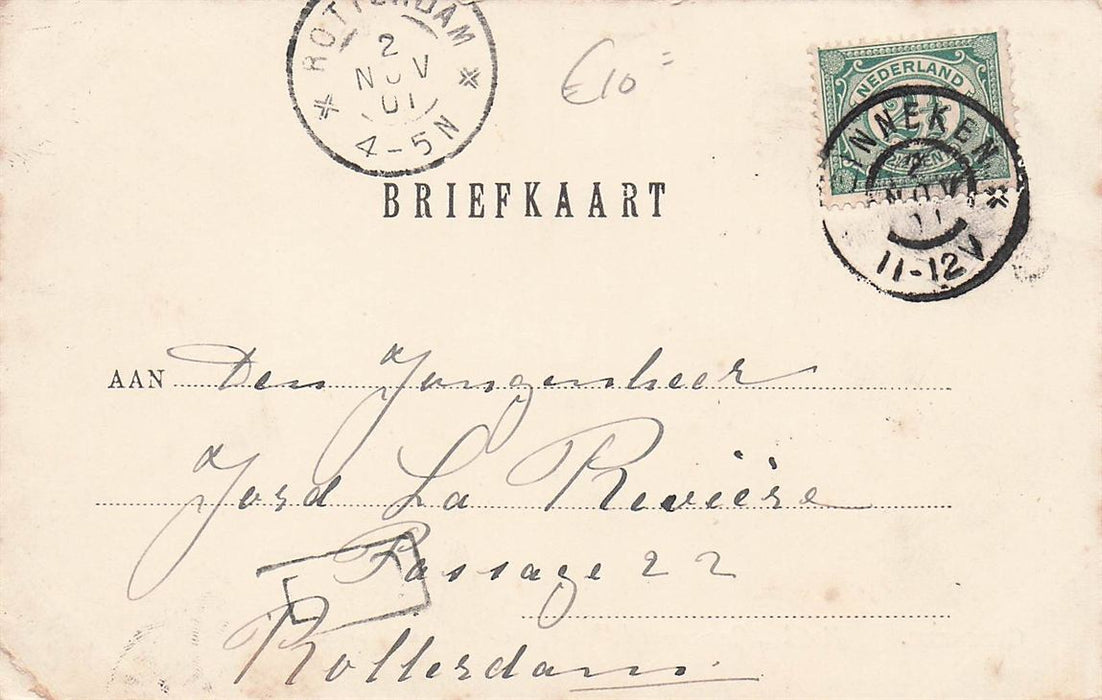 ROTTERDAM
2
NOV
01
4-5N
€10=
NEDERLAND
GINNEKEN
2
NOV
11-12V
BRIEFKAART
AAN Den Jongenheer
Jord La Rivière
Passage 22
Rotterdam.